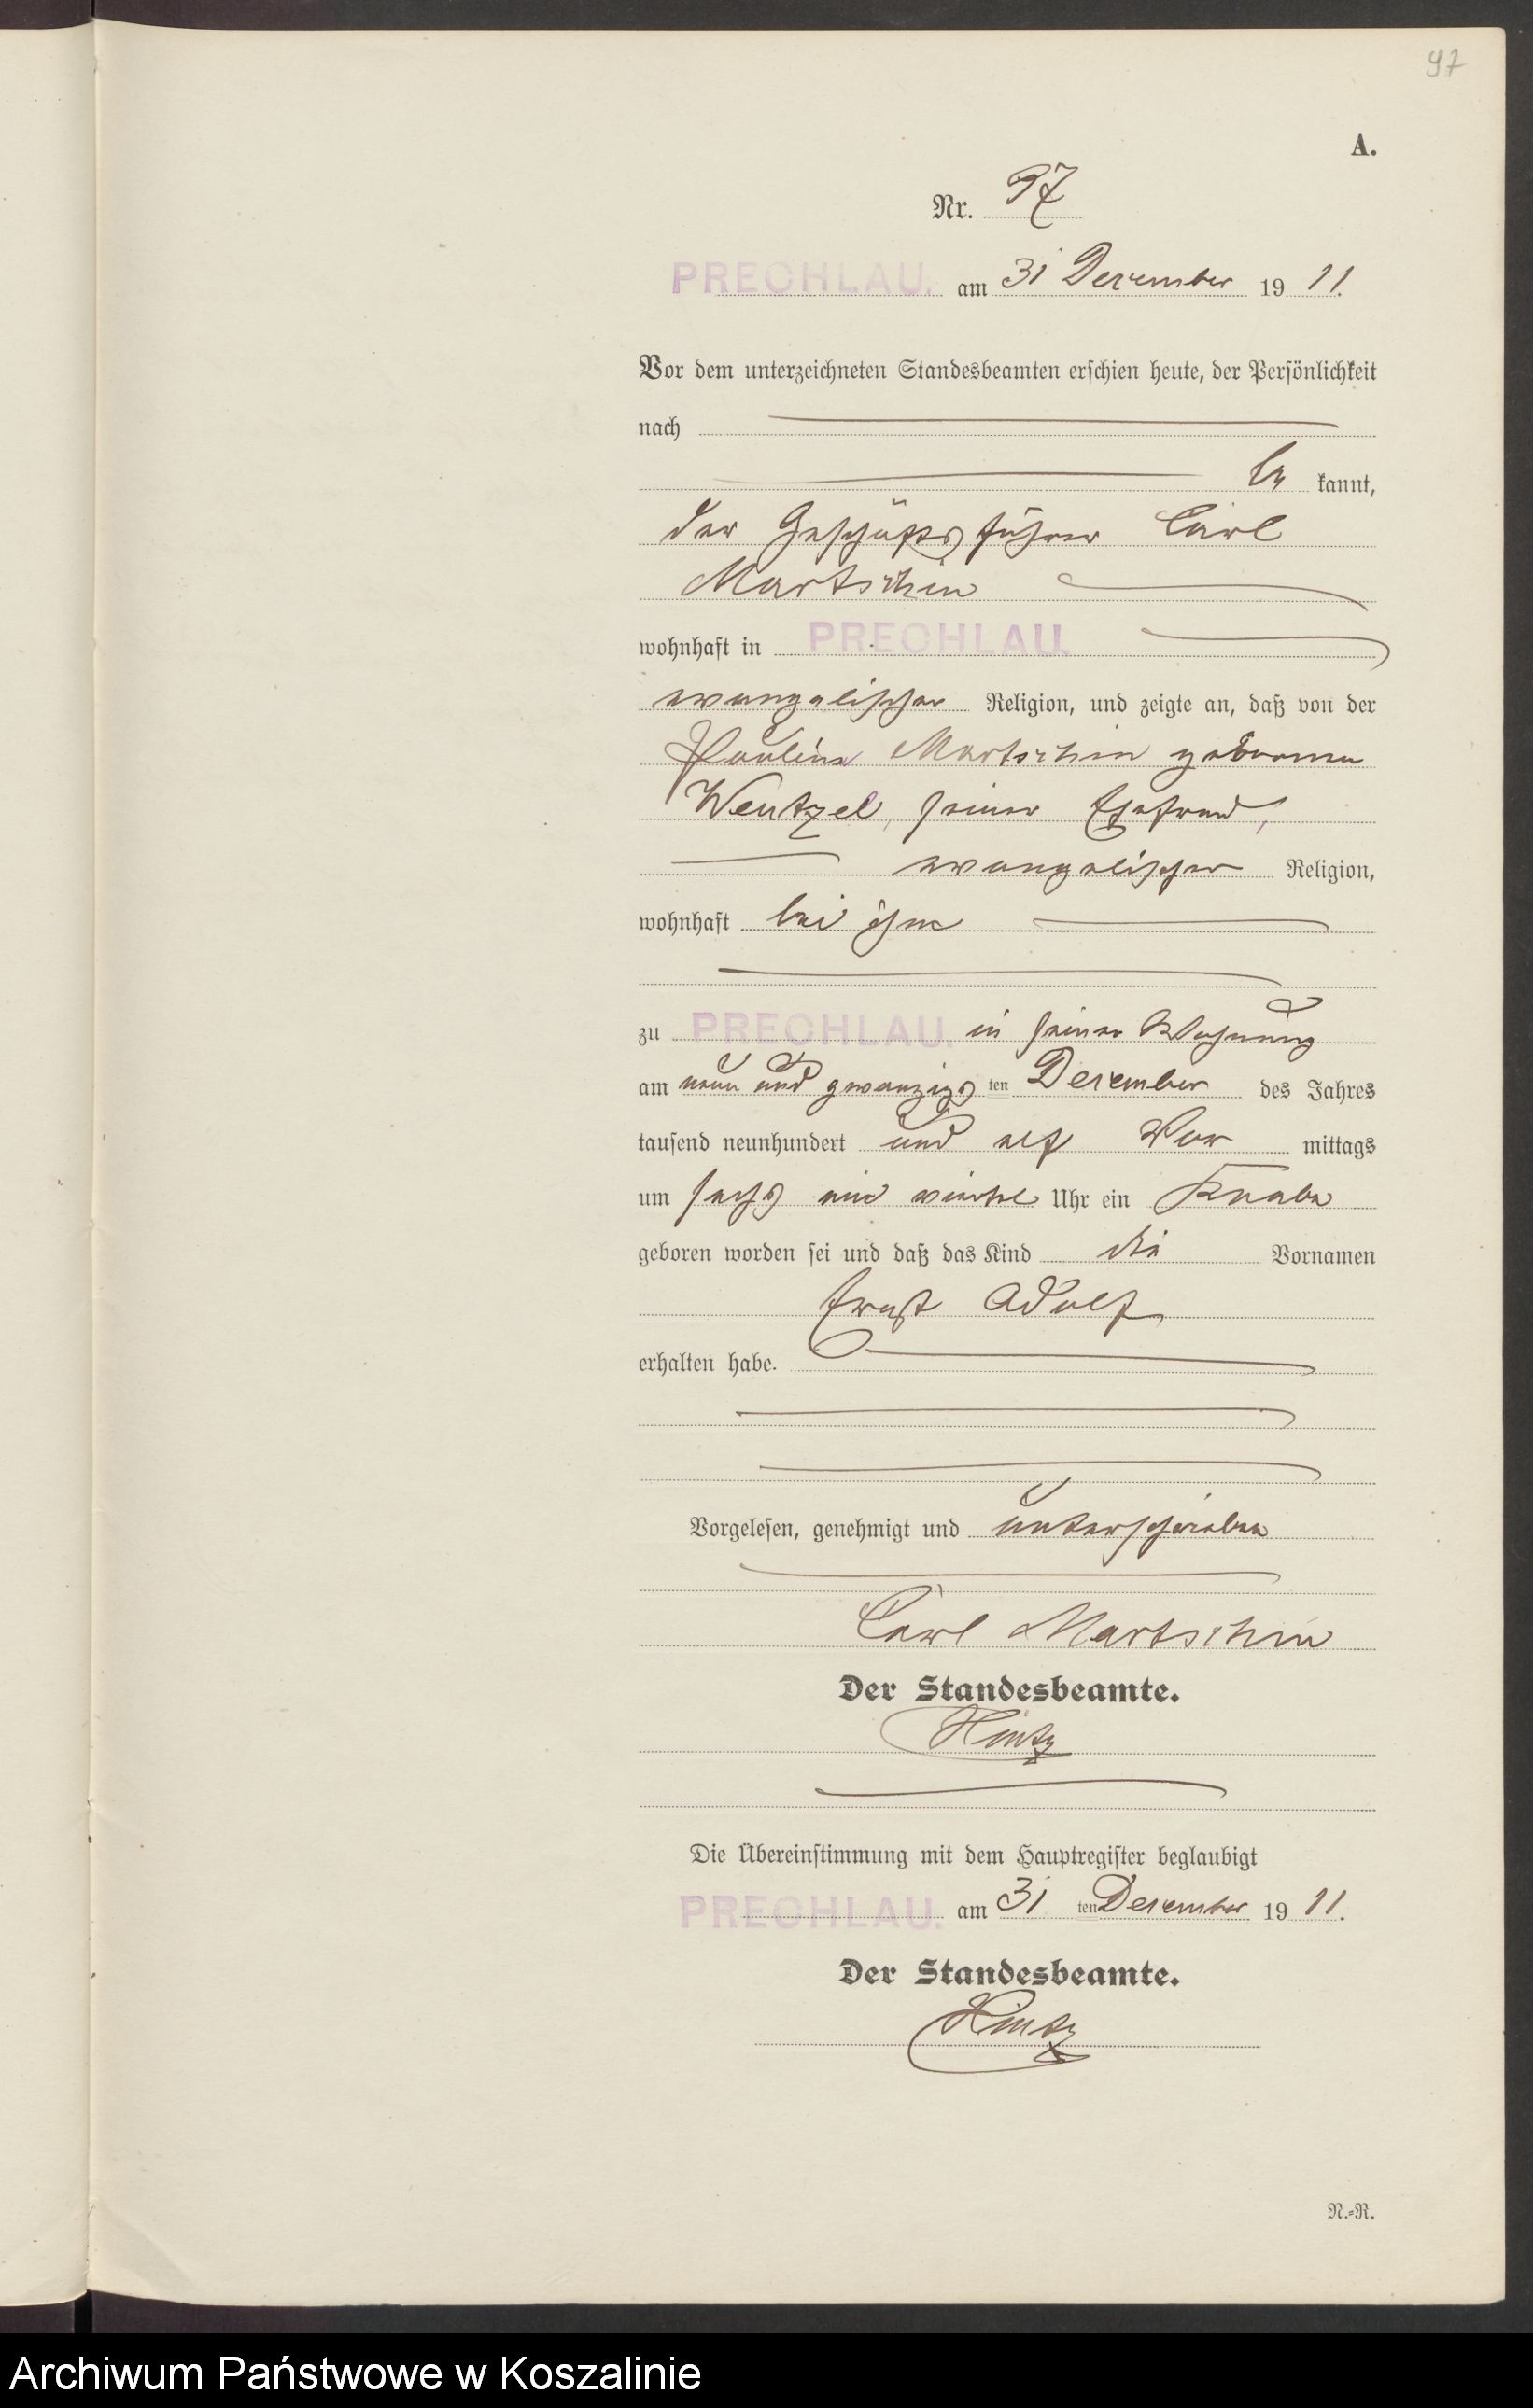 97
A.
Nr. 97
PRECHLAU. am 31 Dezember 19 11.
Vor dem unterzeichneten Standesbeamten erschien heute, der Persönlichkeit
nach
be kannt,
der Geschäftsführer Carl
Martschin
wohnhaft in PRECHLAU.
evangelischer Religion, und zeigte an, daß von der
Pauline Martschin geborenen
Wentzel, seiner Ehefrau,
evangelischer Religion,
wohnhaft bei ihm
zu PRECHLAU. in seiner Wohnung
am neun und zwanzigs ten Dezember des Jahres
tausend neunhundert und elf Vor mittags
um sechs ein viertel Uhr ein Knabe
geboren worden sei und daß das Kind die Vornamen
Ernst Adolf
erhalten habe.
Vorgelesen, genehmigt und unterschrieben
Carl Martschin
Der Standesbeamte.
Hintz
Die Übereinstimmung mit dem Hauptregister beglaubigt
PRECHLAU. am 31 ten Dezember 19 11.
Der Standesbeamte.
Hintz
N.=R.
Archiwum Państwowe w Koszalinie